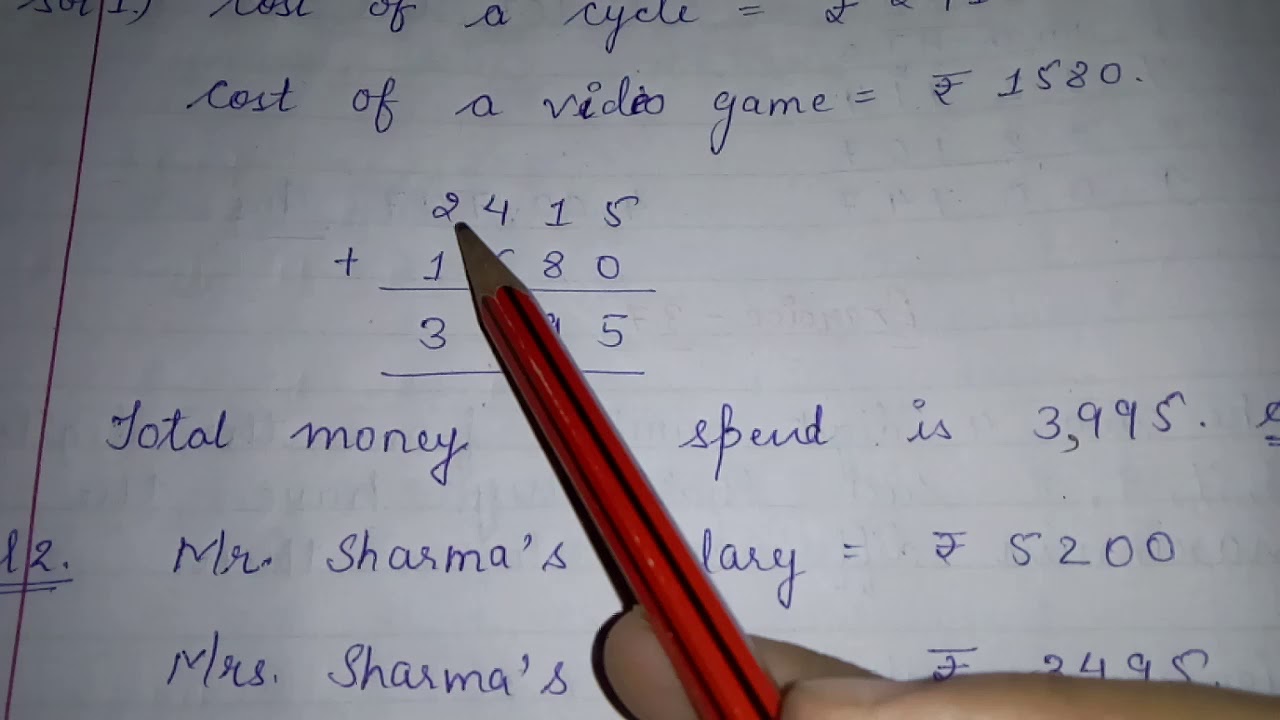 Sol 1.) Cost of a cycle = ₹
Cost of a video game = ₹ 1580.
2 4 1 5
+ 1 5 8 0
3 9 5
Total money spend is 3,995.
l 2. Mr. Sharma's lary = ₹ 5200
Mrs. Sharma's ₹ 2495.